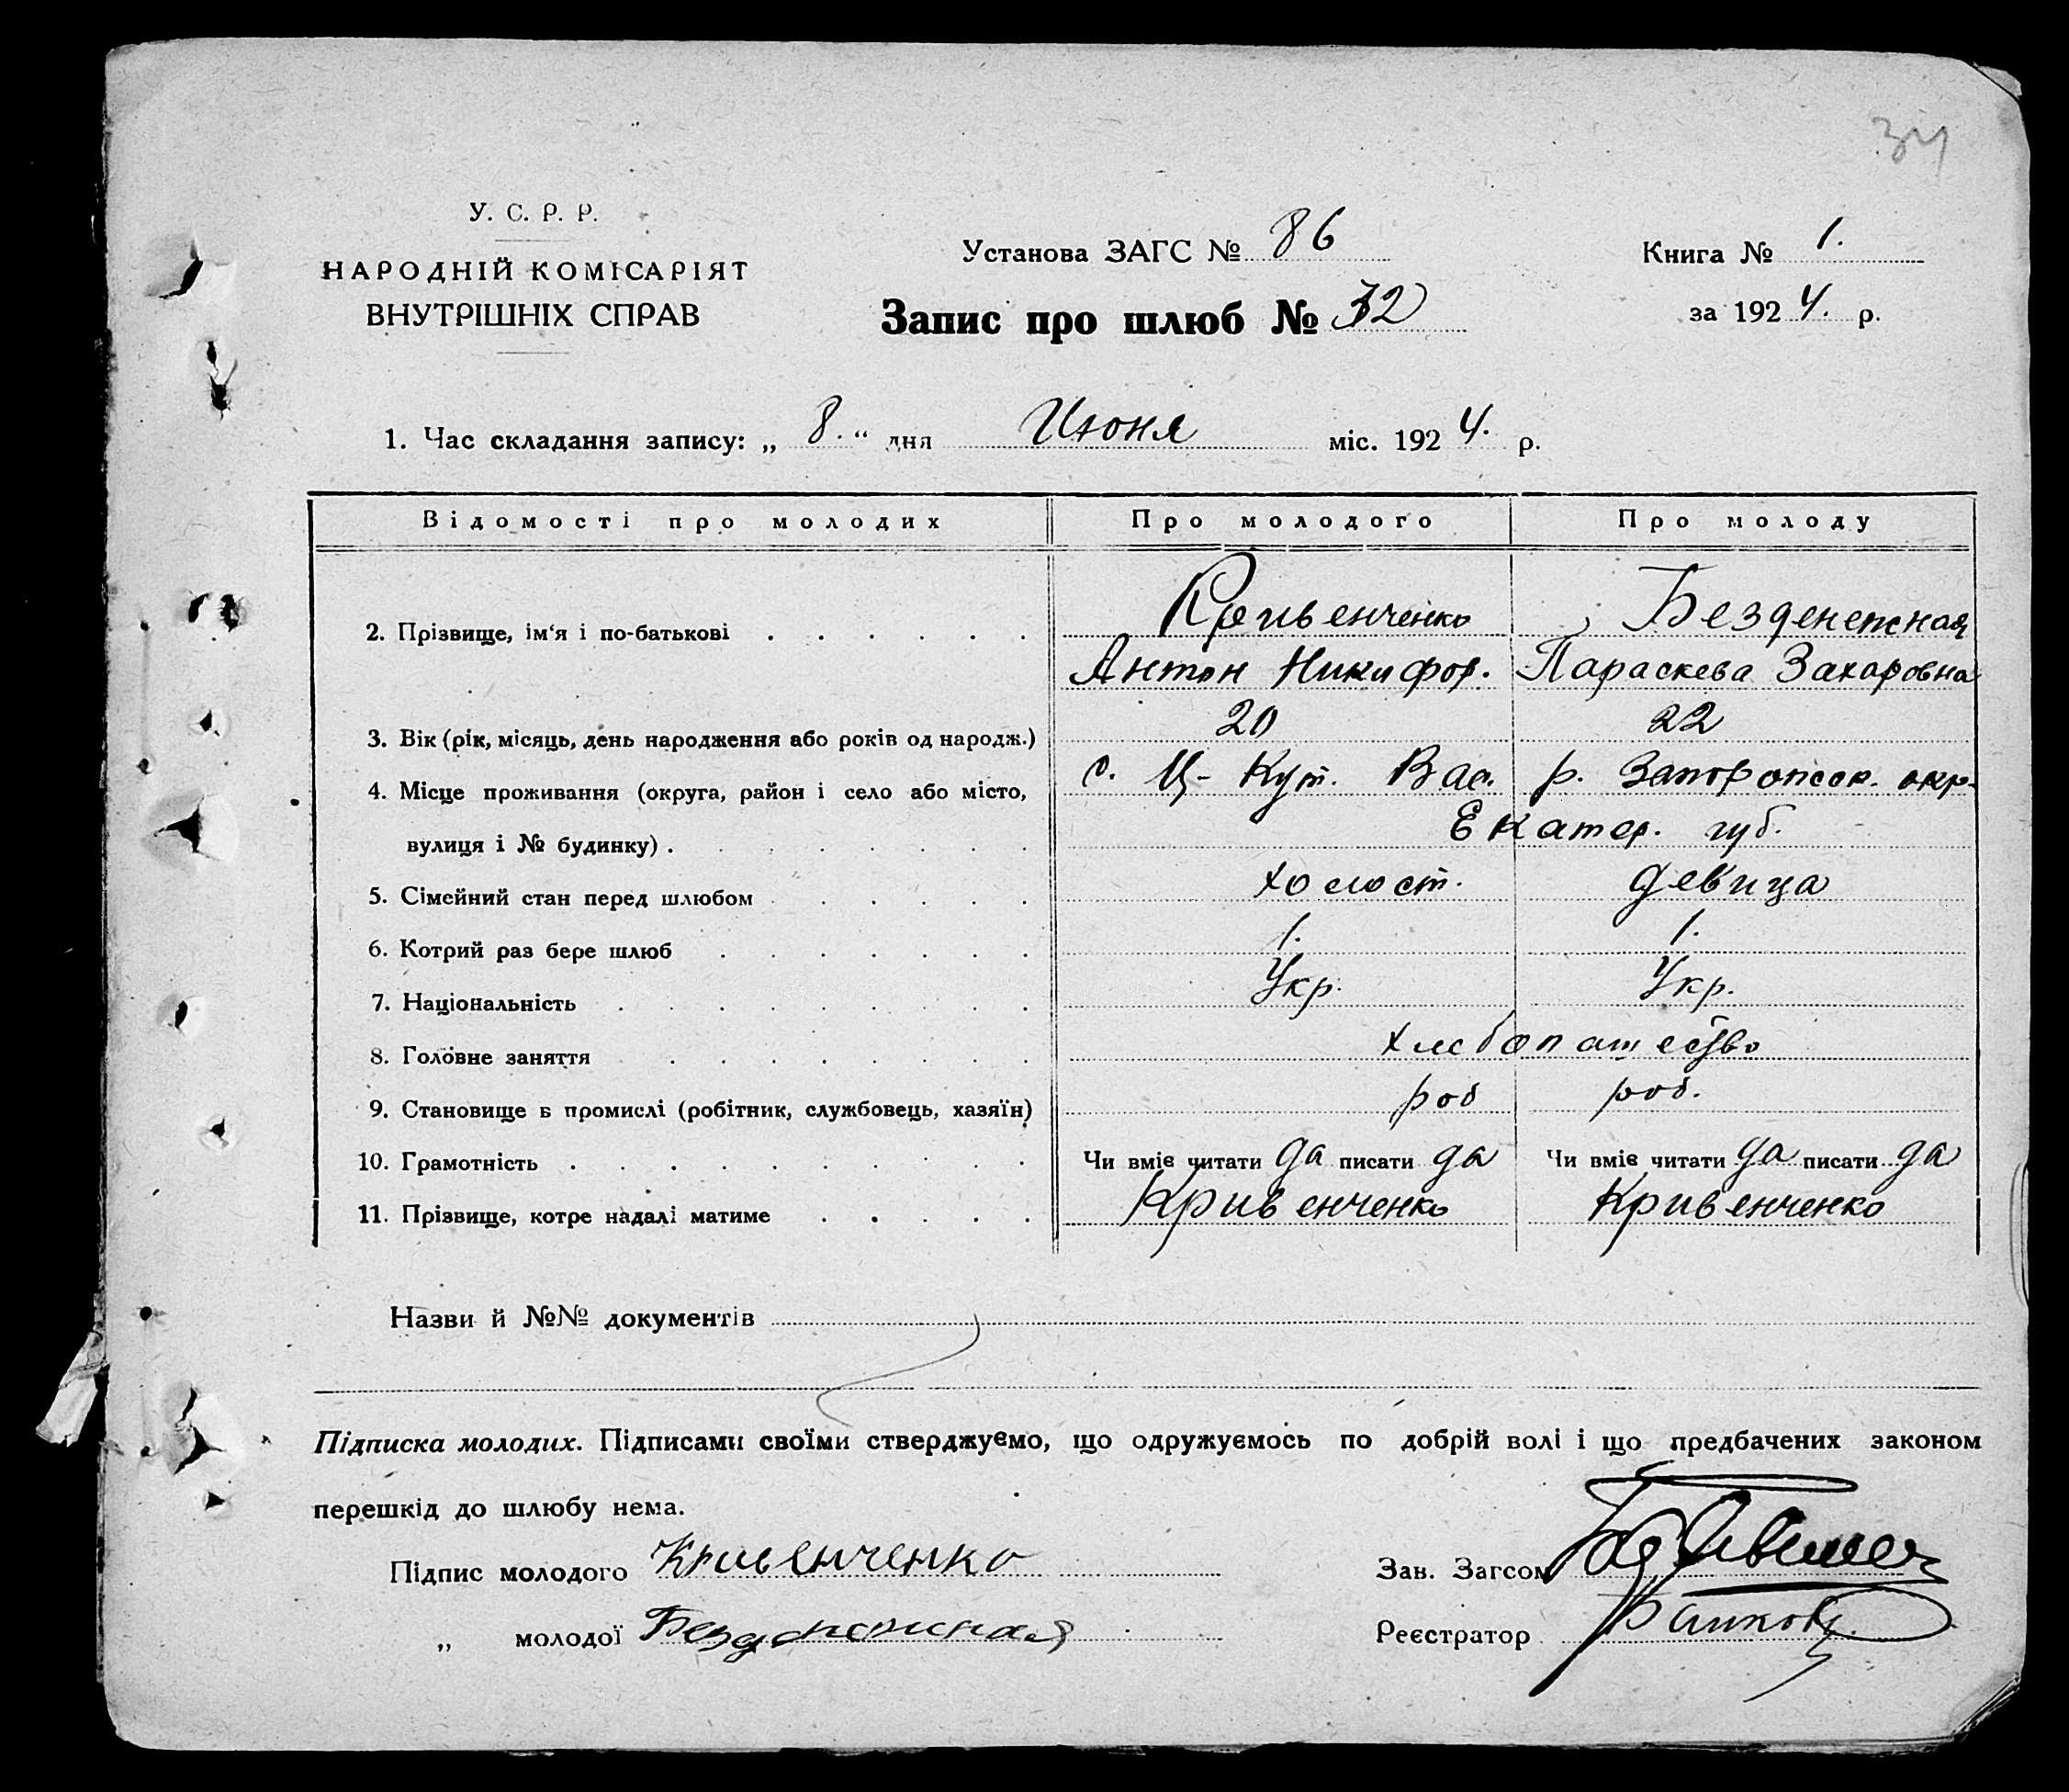 34
У. С. Р. Р.
НАРОДНІЙ КОМІСАРІЯТ
ВНУТРІШНІХ СПРАВ
Установа ЗАГС № 86
Книга № 1.
Запис про шлюб № 32
за 1924. р.
1. Час складання запису: „ 8. “ дня Июня міс. 1924. р.
Відомості про молодих Про молодого Про молоду
2. Прізвище, ім‘я і по-батькові Кривенченко Безденежная
Антон Никифор. Параскева Захаровна
3. Вік (рік, місяць, день народження або років од народж.) 20 22
4. Місце проживання (округа, район і село або місто, с. Ц- Кут. Вас. р. Запорожск. окр.
вулиця і № будинку) Екатер. губ.
5. Сімейний стан перед шлюбом холост. девица
6. Котрий раз бере шлюб 1. 1.
7. Національність Укр. Укр.
8. Головне заняття хлебопашество
9. Становище в промислі (робітник, службовець, хазяїн) роб роб.
10. Грамотність Чи вміє читати да писати да Чи вміє читати да писати да
11. Прізвище, котре надалі матиме Кривенченко Кривенченко
Назви й №№ документів
Підписка молодих. Підписами своїми стверджуємо, що одружуємось по добрій волі і що предбачених законом
перешкід до шлюбу нема.
Підпис молодого Кривенченко Зав. Загсом
„ молодої Безденежная Реєстратор